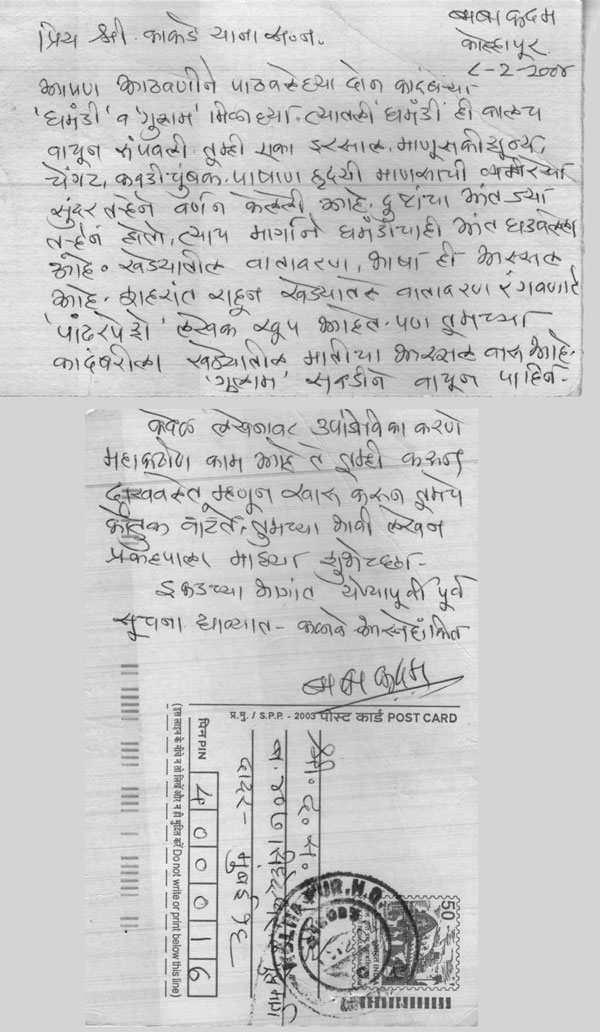 बाबा कदम
कोल्हापूर
८-2-2004
प्रिय श्री. काकडे याना स.न.
आपण आठवणीने पाठवलेल्या दोन कादंबऱ्या
'घमेंडी' व 'गुलाम' मिळाल्या. त्यातली घमेंडी ही कालच
वाचून संपवली. तुम्ही एका इरसाल, माणूसकीशून्य,
चेंगट, कवडीचुंबक, पाषाण हृदयी माणसाची व्यक्तीरेखा
सुंदर तऱ्हेने वर्णन केलेली आहे. दुष्टांचा अंत ज्या
तऱ्हेने होतो, त्याच मार्गाने घमेंडीचाही अंत घडवलेला
आहे. खेड्यातील वातावरण, भाषा ही अस्सल
आहे. शहरांत राहून खेड्यातल वातावरण रंगवणारे
'पांढरपेशे' लेखक खूप आहेत. पण तुमच्या
कादंबरीला खेड्यातील मातीचा अस्सल वास आहे.
'गुलाम' सवडीने वाचून पाहिन.
केवळ लेखनावर उपजिविका करणे
महाकठीण काम आहे ते तुम्ही करून
दाखवलेत म्हणून खास करून तुमचे
कौतुक वाटते. तुमच्या भावी लेखन
प्रकल्पाला माझ्या शुभेच्छा-
इकडच्या भागांत येण्यापूर्वी पूर्व
सूचना द्याव्यात - कळावे आ स्नेहांकित
बाबा कदम
प्र.मु. / S.P.P. - 2003 पोस्ट कार्ड POST CARD
श्री. द. स.
दादर - मुंबई
पिन PIN 400016
(इस लाइन के नीचे न तो लिखें और न ही मुद्रित करें Do not write or print below this line)
50